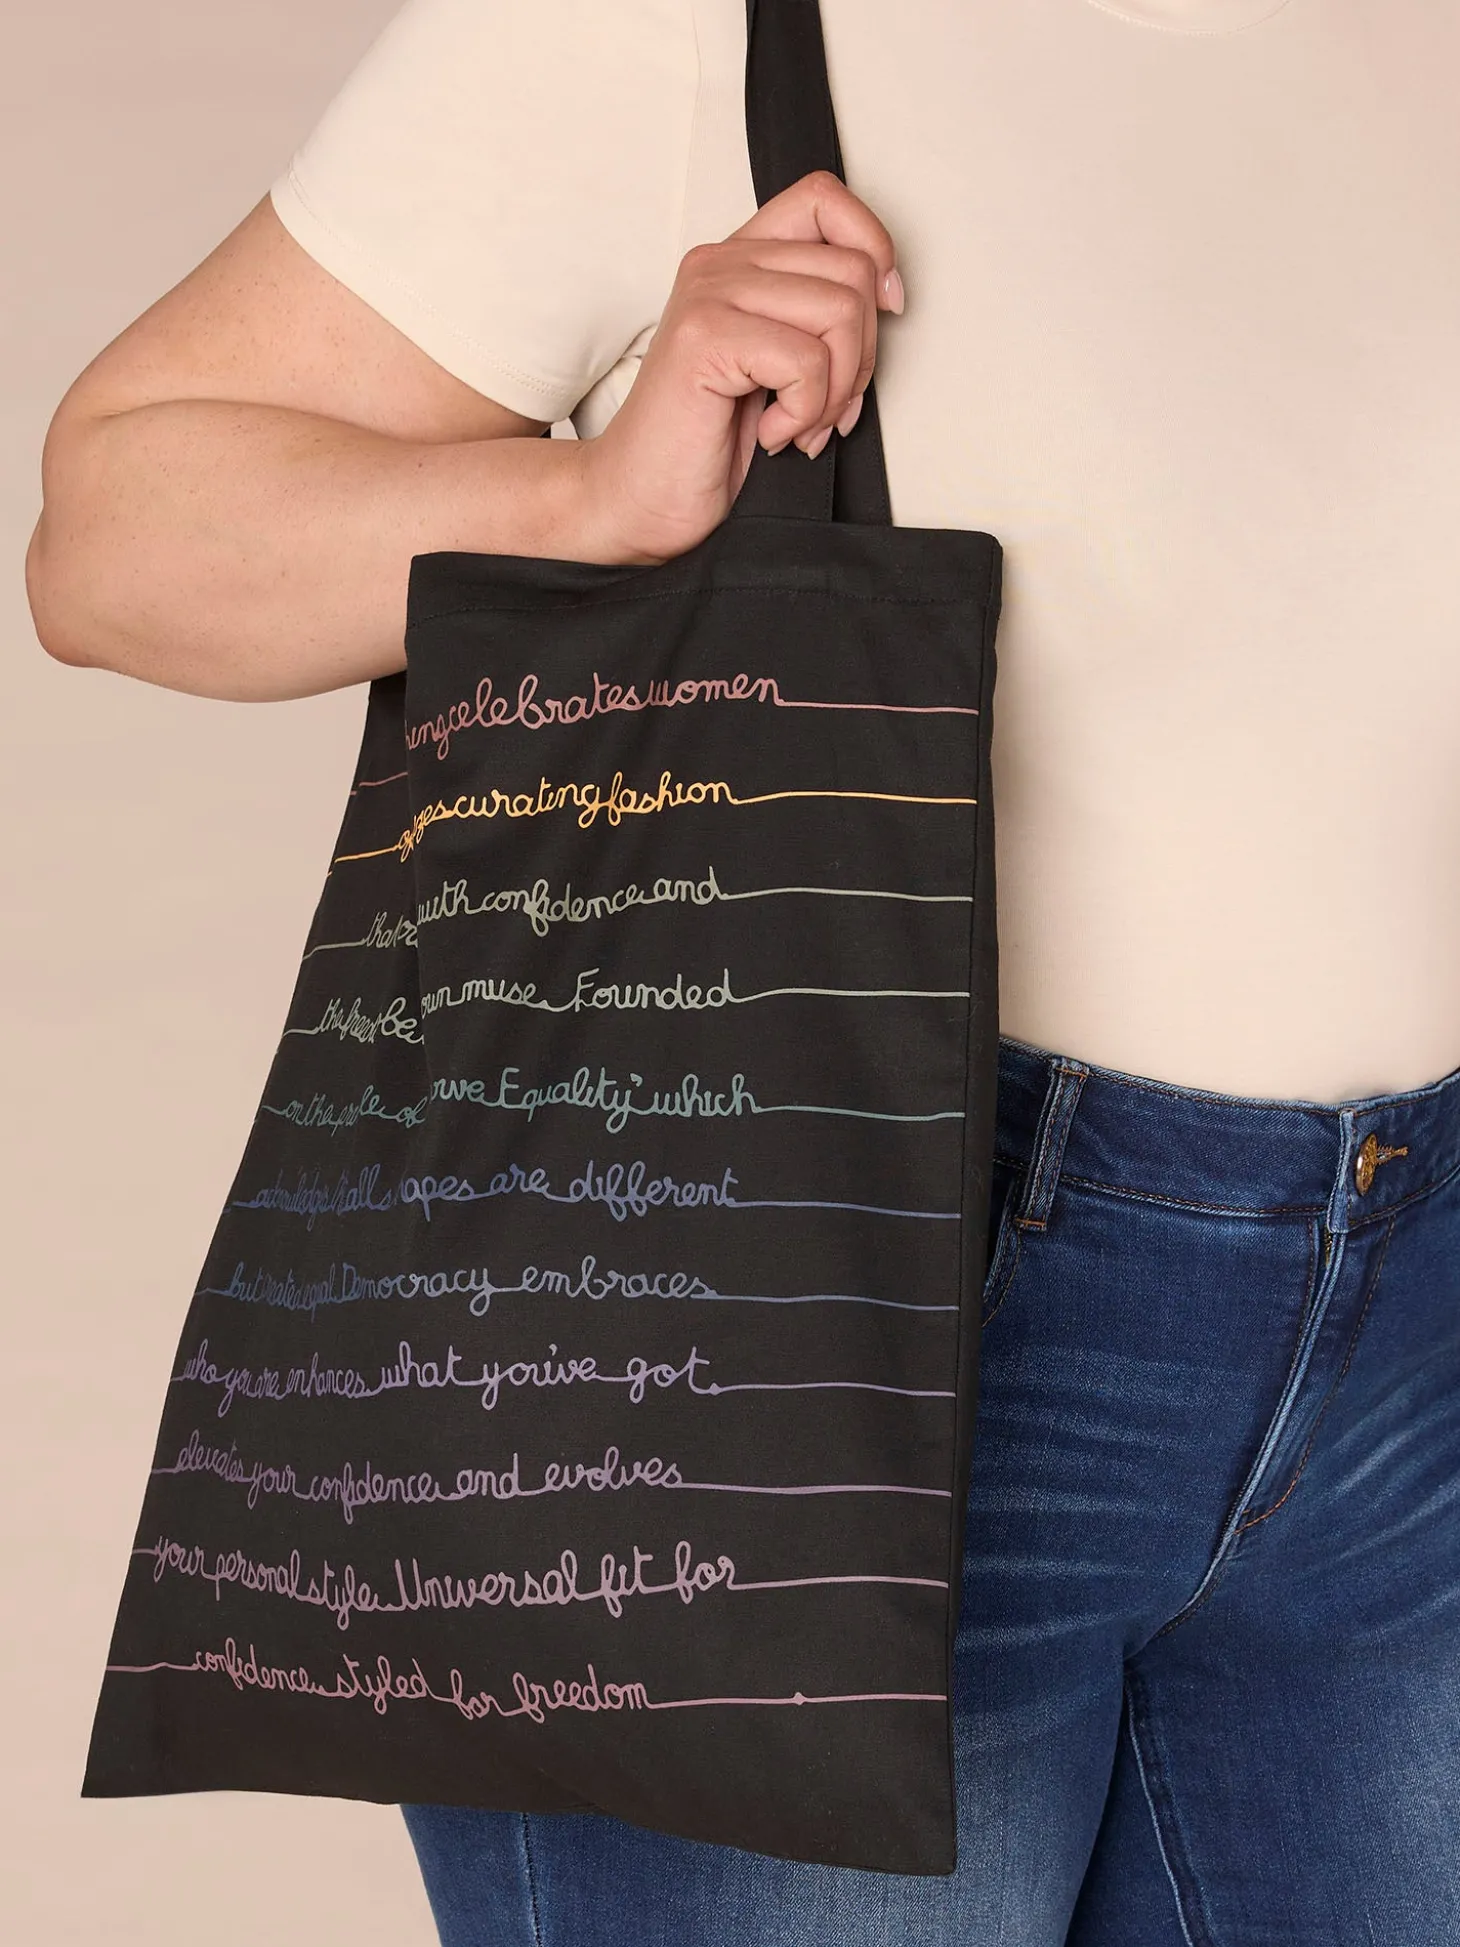 celebrates women
curating fashion
with confidence and
own muse. Founded
on the of Equality" which
all are different
but equal. Democracy embraces
who you are enhances what you've got.
elevates your confidence and evolves
your personal style. Universal fit for
confidence. styled for freedom